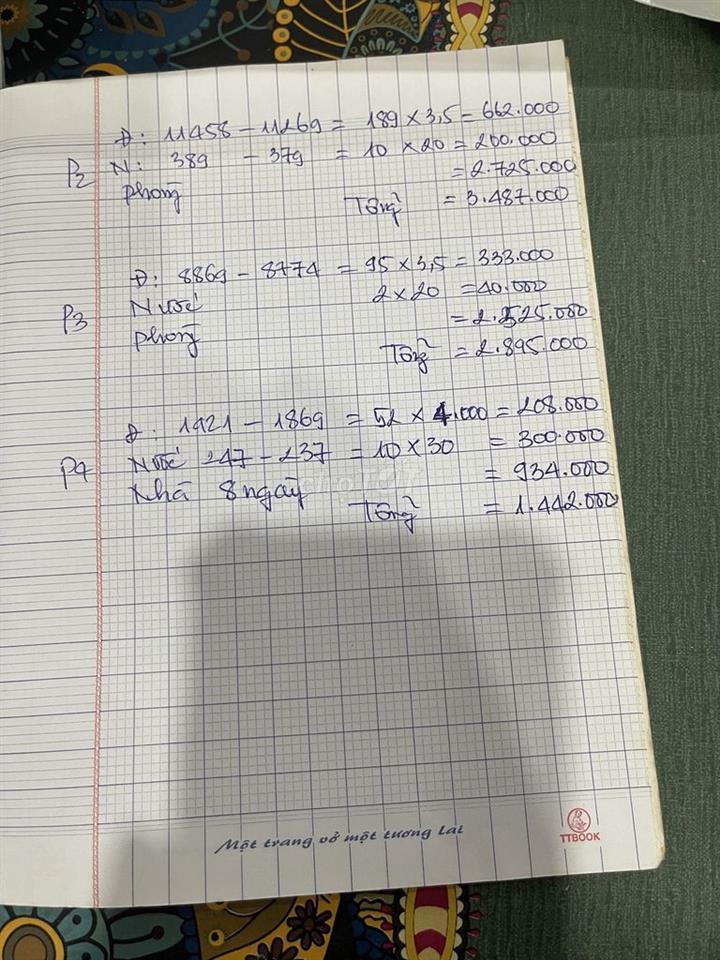 Đ: 11458 - 11269 = 189 x 3,5 = 662.000
P2 N: 389 - 379 = 10 x 20 = 200.000
phòng = 2.725.000
Tổng = 3.487.000
Đ: 8869 - 8774 = 95 x 3,5 = 333.000
P3 Nước 2 x 20 = 40.000
phòng = 2.525.000
Tổng = 2.895.000
Đ: 1921 - 1869 = 52 x 4.000 = 208.000
P4 Nước 247 - 237 = 10 x 30 = 300.000
Nhà 8 ngày = 934.000
Tổng = 1.442.000
Một trang vở một tương lai
TTBOOK